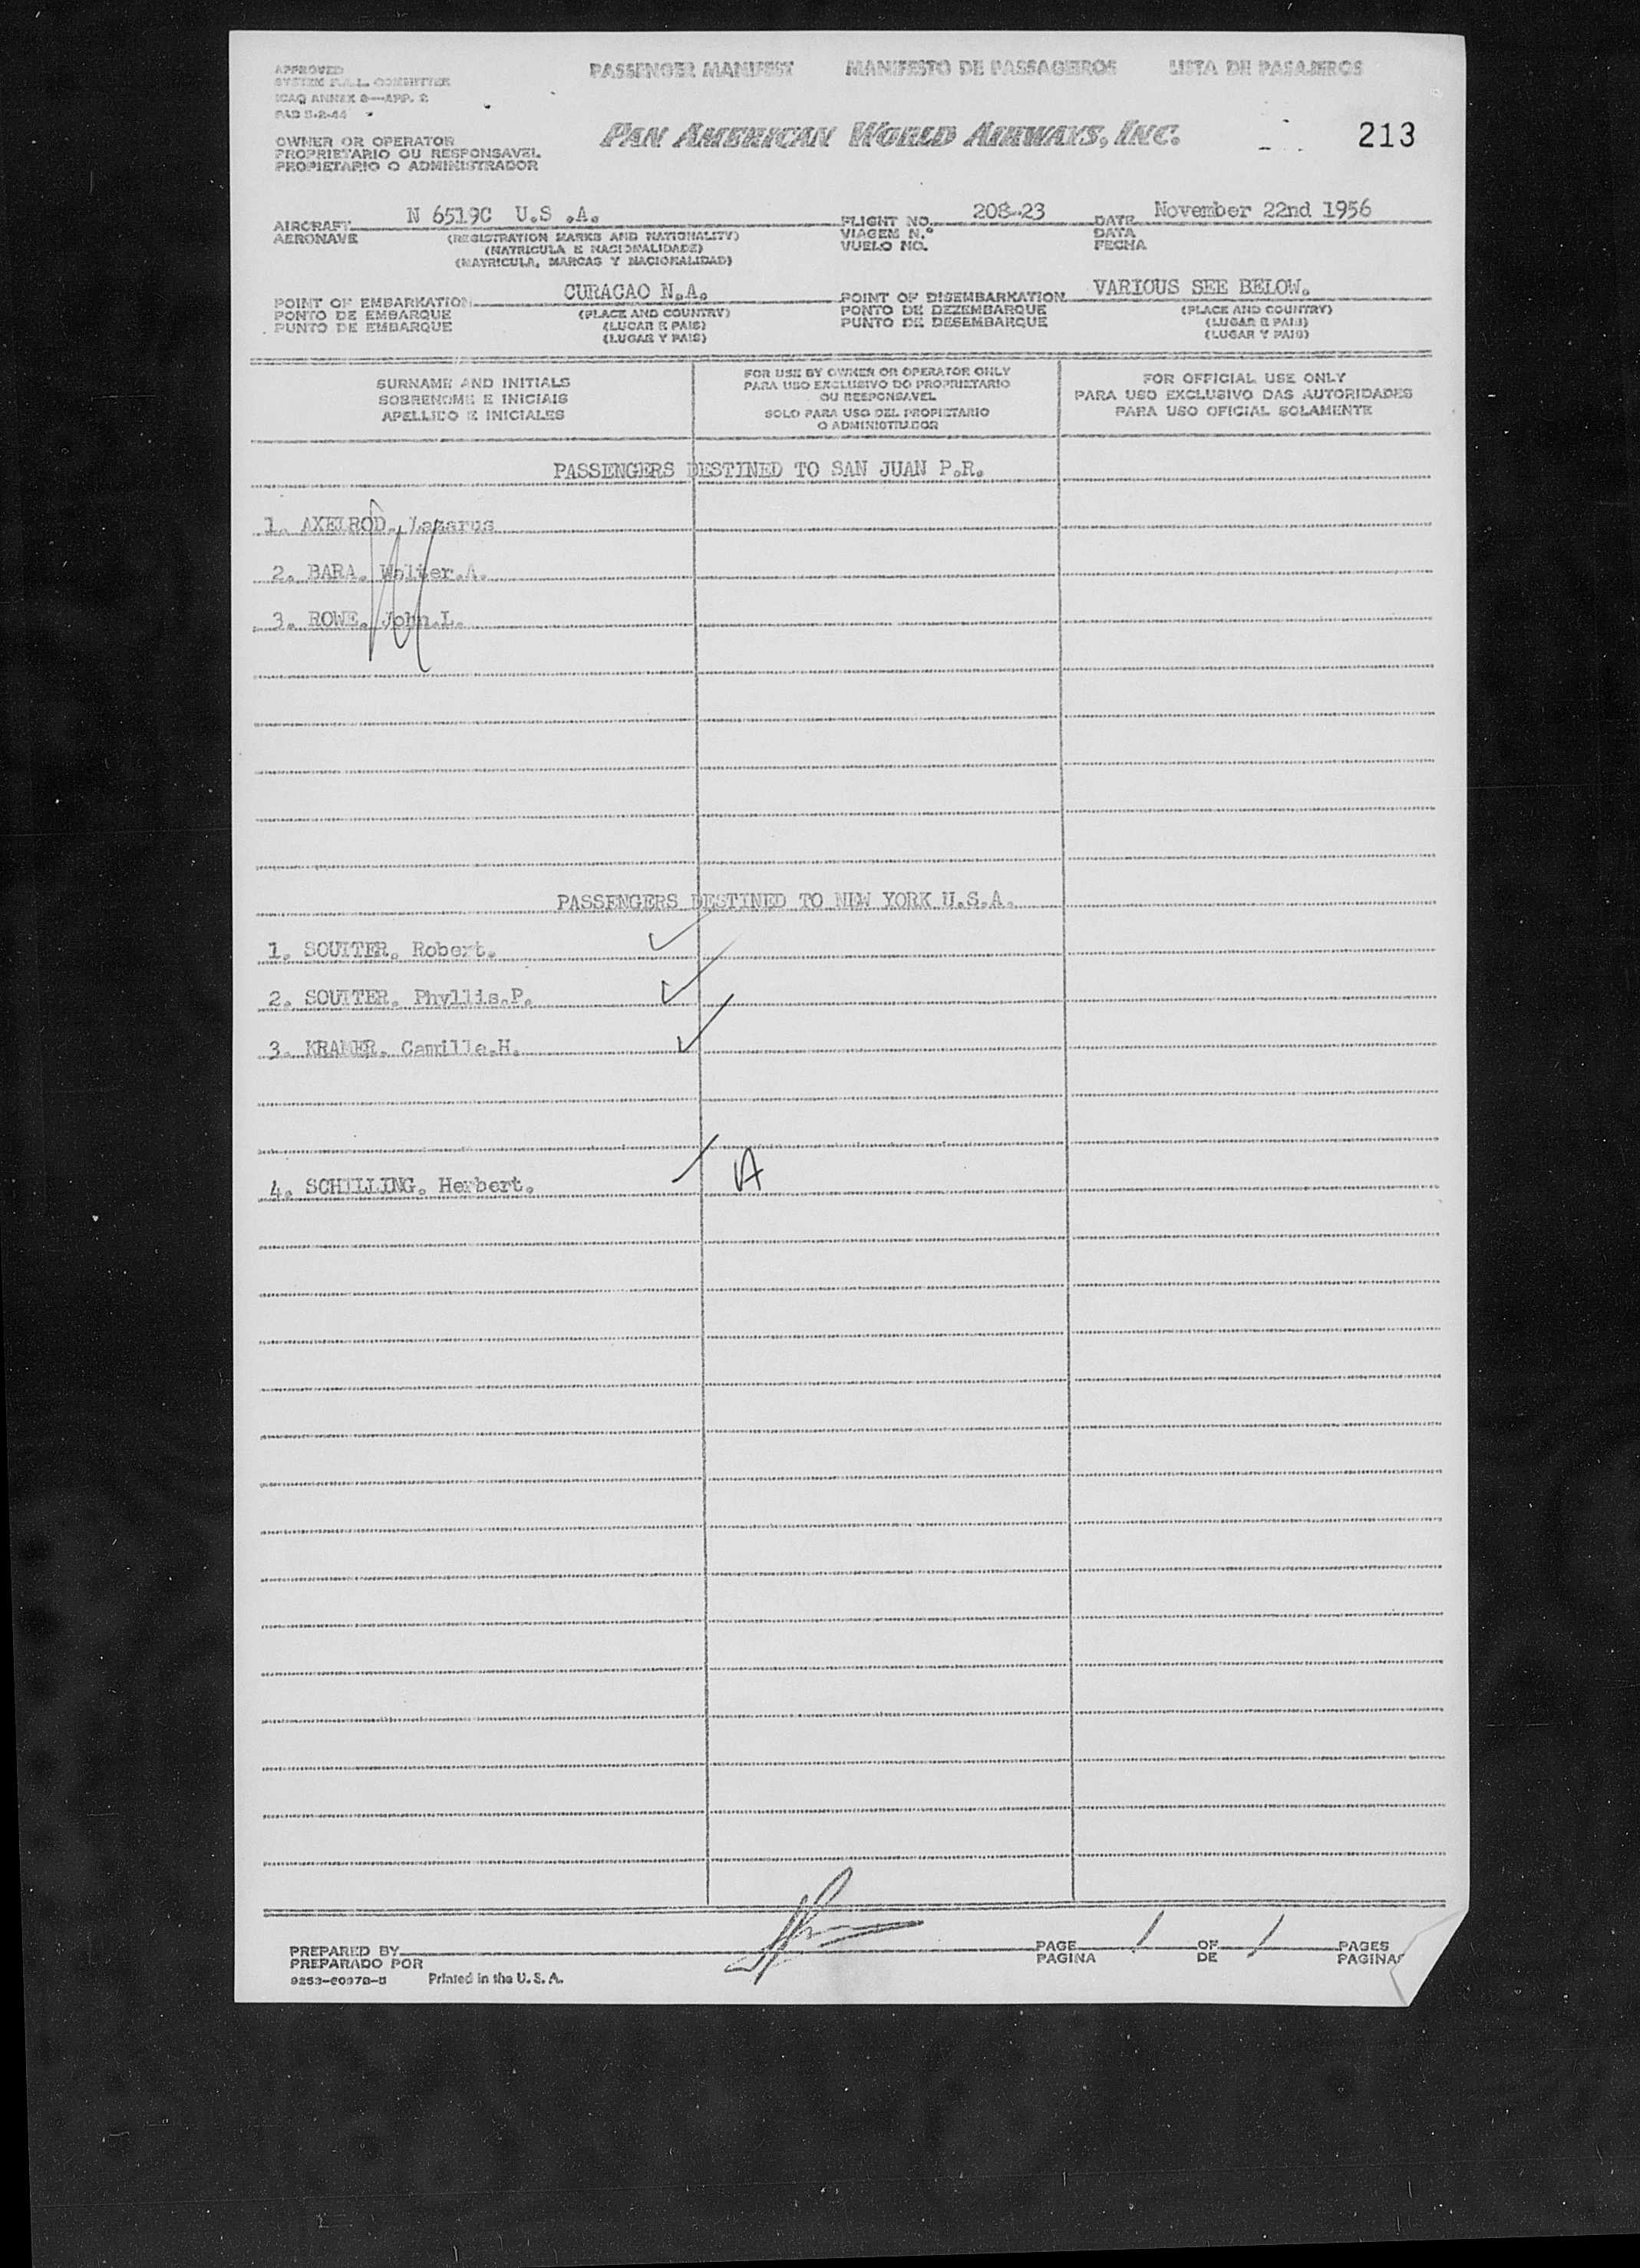 APPROVED
SYSTEM F.A.L. COMMITTEE
ICAO ANNEX 9—APP. 2
PASSENGER MANIFEST MANIFESTO DE PASSAGEIROS LISTA DE PASAJEROS
PAN AMERICAN WORLD AIRWAYS, INC.
213
OWNER OR OPERATOR
PROPRIETARIO OU RESPONSAVEL
PROPIETARIO O ADMINISTRADOR
AIRCRAFT N 6519C U.S .A. FLIGHT NO. 208-23 DATE November 22nd 1956
AERONAVE (REGISTRATION MARKS AND NATIONALITY) VIAGEM N.º DATA
(MATRICULA E NACIONALIDADE) VUELO NO. FECHA
(MATRICULA, MARCAS Y NACIONALIDAD)
POINT OF EMBARKATION CURACAO N.A. POINT OF DISEMBARKATION VARIOUS SEE BELOW.
PONTO DE EMBARQUE (PLACE AND COUNTRY) PONTO DE DEZEMBARQUE (PLACE AND COUNTRY)
PUNTO DE EMBARQUE (LUGAR E PAIS) PUNTO DE DESEMBARQUE (LUGAR E PAIS)
(LUGAR Y PAIS) (LUGAR Y PAIS)
SURNAME AND INITIALS
SOBRENOME E INICIAIS
APELLIDO E INICIALES
FOR USE BY OWNER OR OPERATOR ONLY
PARA USO EXCLUSIVO DO PROPRIETARIO
OU RESPONSAVEL
SOLO PARA USO DEL PROPIETARIO
O ADMINISTRADOR
FOR OFFICIAL USE ONLY
PARA USO EXCLUSIVO DAS AUTORIDADES
PARA USO OFICIAL SOLAMENTE
PASSENGERS DESTINED TO SAN JUAN P.R.
1. AXELROD. Lazarus
2. BARA. Walter.A.
3. ROWE. John.L.
PASSENGERS DESTINED TO NEW YORK U.S.A.
1. SOUTTER. Robert.
2. SOUTTER. Phyllis.P.
3. KRAMER. Camille.H.
4. SCHILLING. Herbert.
A
PREPARED BY PAGE 1 OF 1 PAGES
PREPARADO POR PAGINA DE PAGINAS
Printed in the U. S. A.